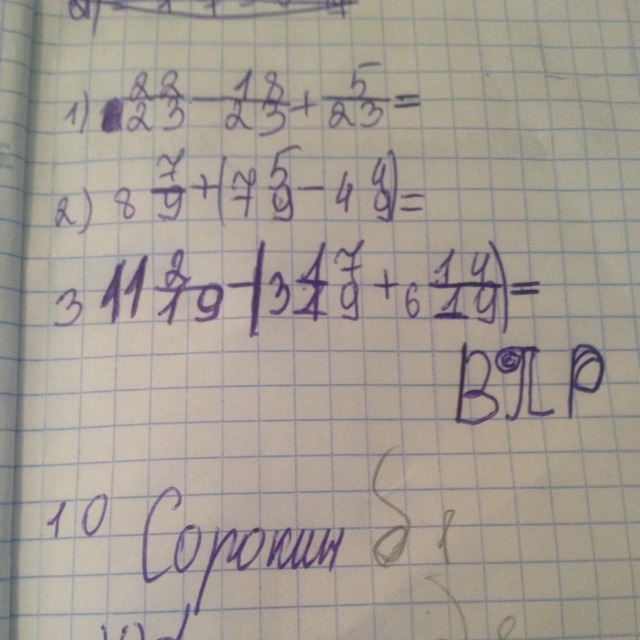 1) 22/23 - 18/23 + 5/23 =
2) 8 7/9 + (7 5/9 - 4 4/9) =
3 11 2/19 - (3 17/19 + 6 14/19) =
ВПР
10 Сорокин